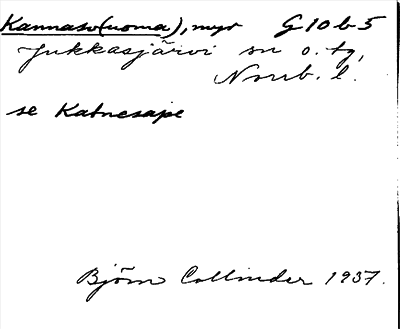 Kannaso(uoma), myr G10b5
Jukkasjärvi sn o. tg,
Norrb. l.
se Katnesape
Björn Collinder 1937.